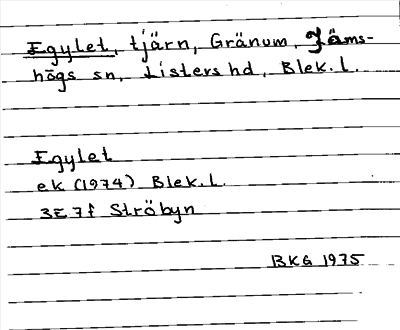 Egylet, tjärn, Gränum, Jäms-
högs sn, Listers hd, Blek. l.
Egylet
ek (1974) Blek. l.
3E 7f Ströbyn
BKG 1975